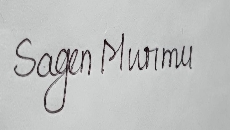 Sagen Murmu